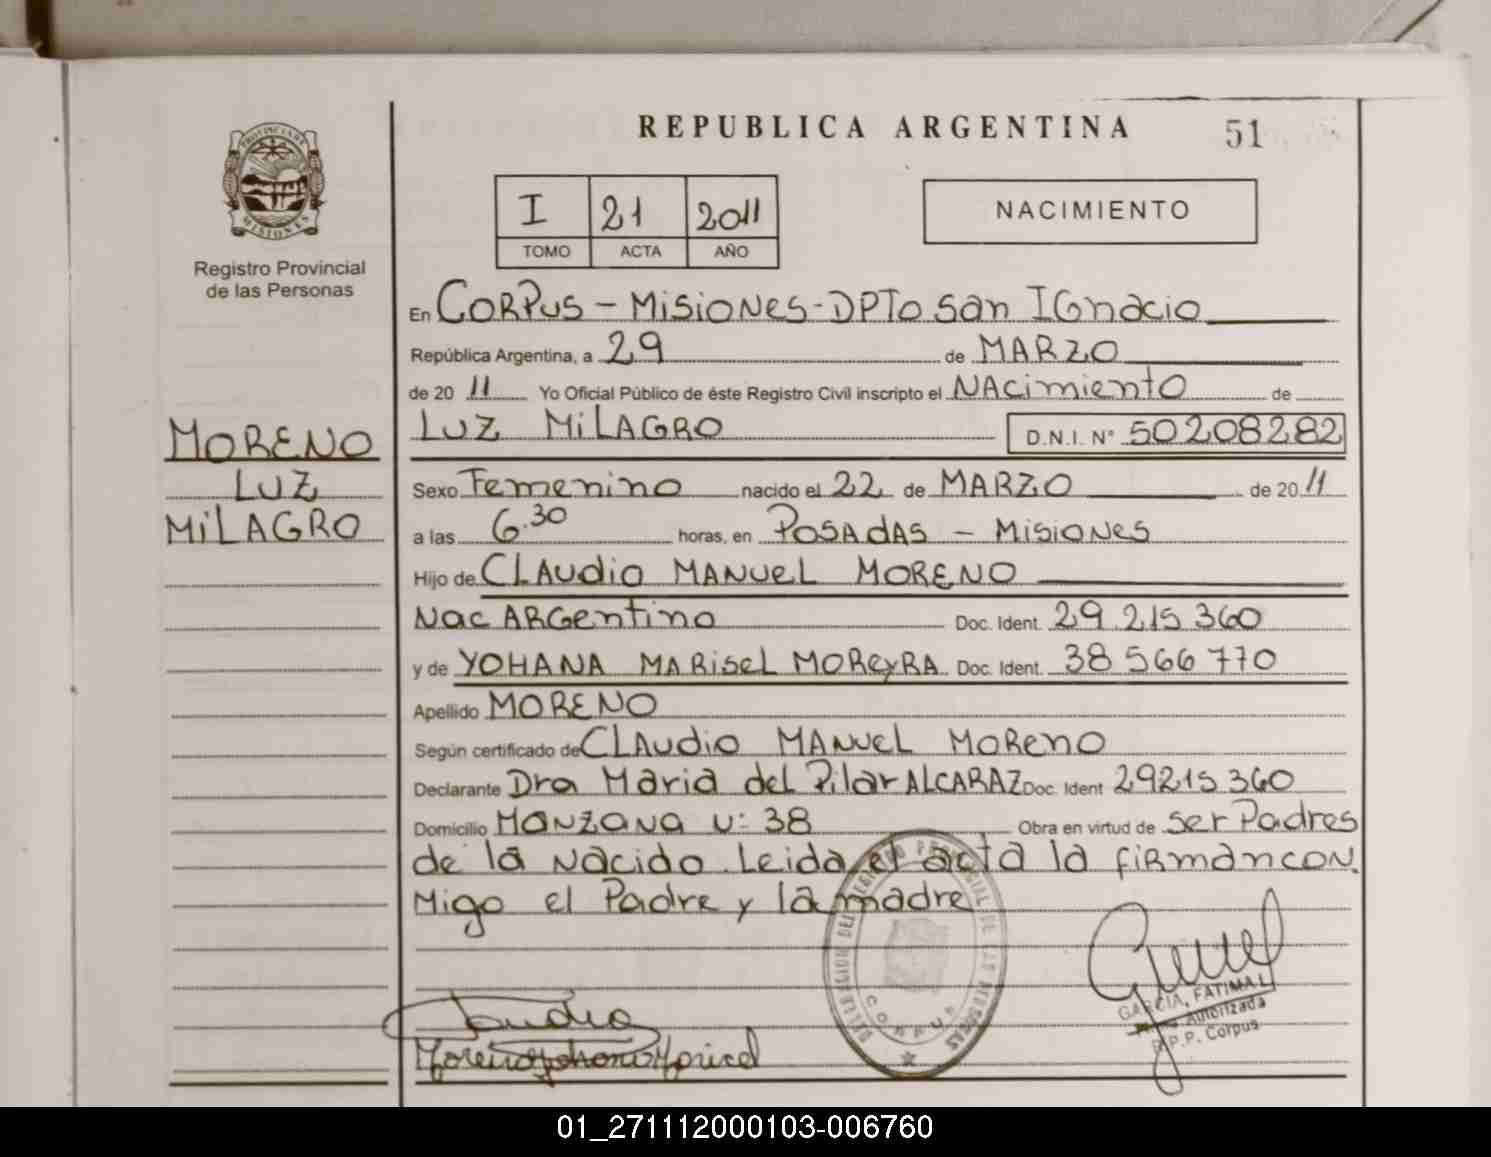 REPUBLICA ARGENTINA 51
PROVINCIA DE MISIONES
Registro Provincial
de las Personas
I 21 2011
TOMO ACTA AÑO
NACIMIENTO
En CORPUS - MISIONES - DPTO San IGnacio
República Argentina, a 29 de MARZO
de 20 11 Yo Oficial Público de éste Registro Civil inscripto el NAcimiento de
LUZ MiLAGRO D.N.I. N° 50208282
MORENO
LUZ
MiLAGRO
Sexo Femenino nacido el 22 de MARZO de 20 11
a las 6.30 horas, en POSAdAS - MisiONes
Hijo de CLAudio MANueL MORENO
Nac ARGentino Doc. Ident. 29.215.360
y de YOHANA MARiseL MOReyRA Doc. Ident. 38 566 770
Apellido MORENO
Según certificado de CLAudio MANueL MoReno
Declarante Dra Maria del Pilar ALCARAZ Doc. Ident 29215360
Domicilio Manzana U: 38 Obra en virtud de ser Padres
de la Nacido. Leida el acta la fiRman con
Migo el Padre y la madre
DELEGACION DEL REGISTRO PROVINCIAL DE LAS PERSONAS
CORPUS
GARCIA, FATIMA L
Autorizada
R.P.P. Corpus
01_271112000103-006760